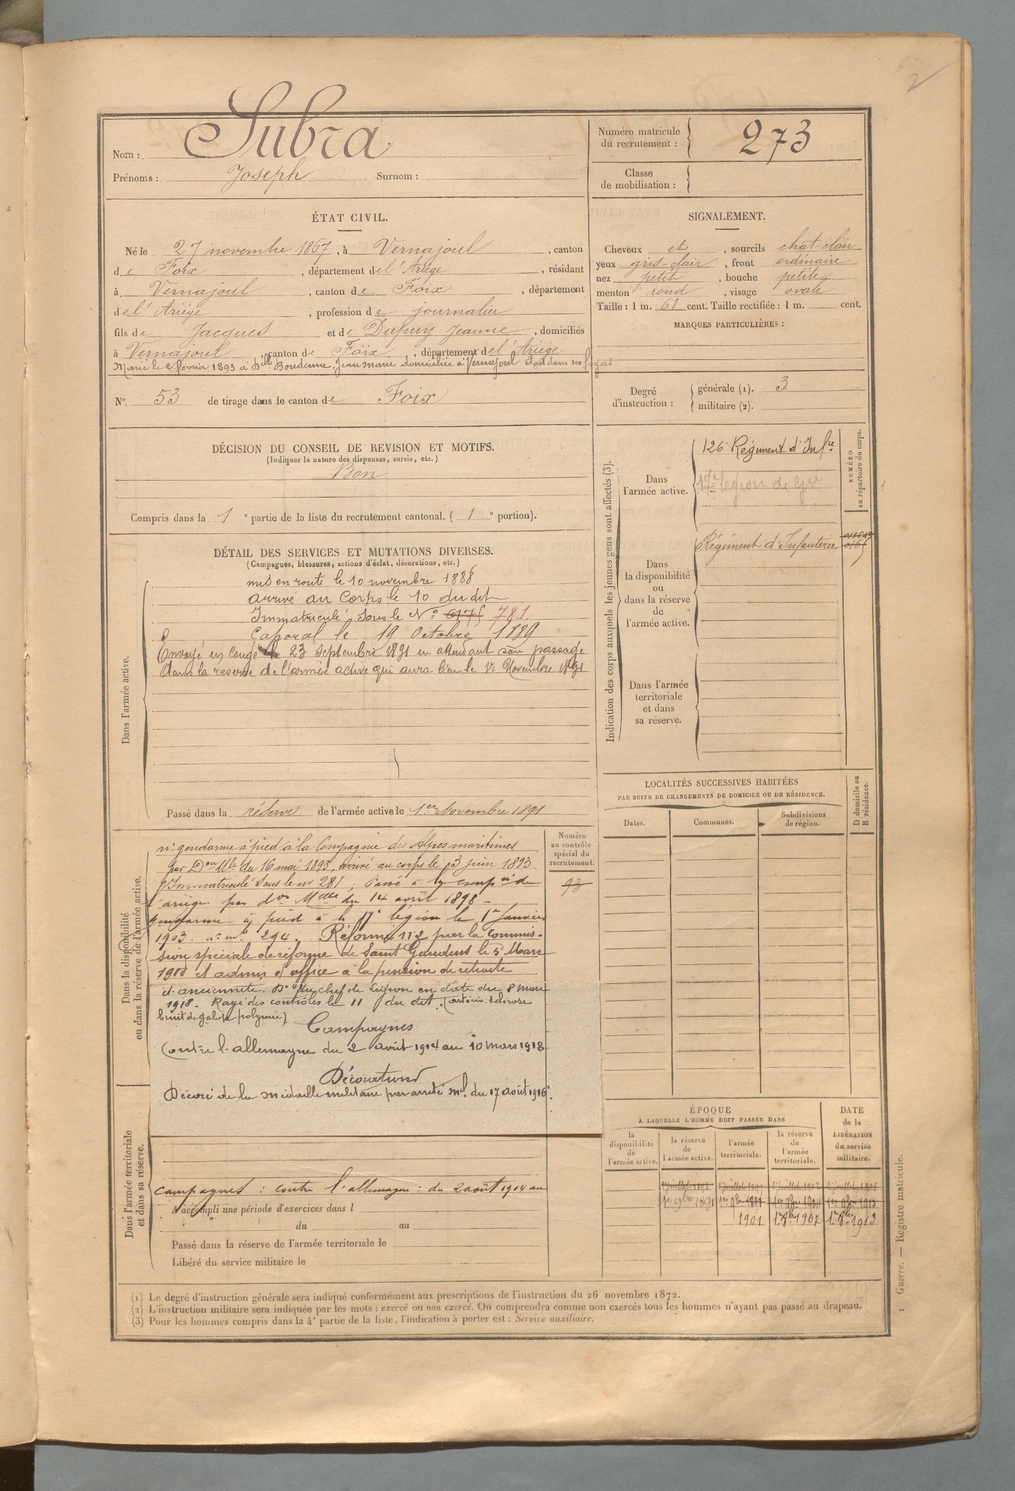 2
Subra
Nom :
Prénoms : Joseph Surnom :
Numéro matricule du recrutement : 273
Classe de mobilisation :
ÉTAT CIVIL.
Né le 27 novembre 1867, à Vernajoul, canton
de Foix, département de l'Ariège, résidant
à Vernajoul, canton de Foix, département
de l'Ariège, profession de journalier
fils de Jacques et de Dupuy Jeanne, domiciliés
à Vernajoul, canton de Foix, département de l'Ariège
Marié le février 1893 à Dlle Jean Marie domiciliée à Vernajoul
No 53 de tirage dans le canton de Foix
SIGNALEMENT.
Cheveux et, sourcils chat clair
yeux gris-clair, front ordinaire
nez petit, bouche petite
menton rond, visage ovale
Taille : 1 m. 61 cent. Taille rectifiée : 1 m. cent.
MARQUES PARTICULIÈRES :
Degré d'instruction : générale (1). 3
militaire (2).
DÉCISION DU CONSEIL DE REVISION ET MOTIFS.
(Indiquer la nature des dispenses, sursis, etc.)
Bon
Compris dans la 1e partie de la liste du recrutement cantonal. ( 1e portion).
DÉTAIL DES SERVICES ET MUTATIONS DIVERSES.
(Campagnes, blessures, actions d'éclat, décorations, etc.)
Dans l'armée active.
mis en route le 10 novembre 1888
arrivé au Corps le 10 du dit
Immatriculé sous le No 781
Caporal le 19 Octobre 1889
Envoyé en congé le 23 Septembre 1891 en attendant son passage
dans la réserve de l'armée active qui aura lieu le 1er Novembre 1891
Passé dans la réserve de l'armée active le 1er Novembre 1891
Indication des corps auxquels les jeunes gens sont affectés (3).
Dans l'armée active.
126e Régiment d'Infre
17e légion de
NUMÉRO au répertoire du corps.
Dans la disponibilité ou dans la réserve de l'armée active.
Régiment d'Infanterie
Dans l'armée territoriale et dans sa réserve.
LOCALITÉS SUCCESSIVES HABITÉES
PAR SUITE DE CHANGEMENTS DE DOMICILE OU DE RÉSIDENCE.
Dates. Communes. Subdivisions de région. D domicile ou R résidence.
Dans la disponibilité ou dans la réserve de l'armée active.
Numéro au contrôle spécial du recrutement.
gendarme à pied à la Compagnie des Alpes maritimes
par Don Mlle du 16 mai 1893, arrivé au corps le 13 juin 1893.
Immatriculé sous le no 281, Passé à la compie de
l'ariège par don Mlle du 14 août 1898.
gendarme à pied à la 17e légion le 1er Janvier
1903. no mle 294. Réformé no 2 par la commis-
sion spéciale de réforme de Saint Gaudens le 5 Mars
1918 et admis d'office à la pension de retraite
d'ancienneté. Don du chef de Légion en date du 8 mars
1918. Rayé des contrôles le 11 du dit.
bruit de galop
Campagnes
Contre l'allemagne du 2 août 1914 au 10 mars 1918
Décoré de la médaille militaire par arrêté ml du 17 août 1916.
Dans l'armée territoriale et dans sa réserve.
Campagnes : contre l'allemagne : du 2 août 1914 au
a accompli une période d'exercices dans l
du au
Passé dans la réserve de l'armée territoriale le
Libéré du service militaire le
ÉPOQUE
À LAQUELLE L'HOMME DOIT PASSER DANS
la disponibilité de l'armée active. la réserve de l'armée active. l'armée territoriale. la réserve de l'armée territoriale.
DATE de la LIBÉRATION du service militaire.
1901 1907 1913
(1) Le degré d'instruction générale sera indiqué conformément aux prescriptions de l'instruction du 26 novembre 1872.
(2) L'instruction militaire sera indiquée par les mots : exercé ou non exercé. On comprendra comme non exercés tous les hommes n'ayant pas passé au drapeau.
(3) Pour les hommes compris dans la 4e partie de la liste, l'indication à porter est : Service auxiliaire.
1 Guerre. — Registre matricule.